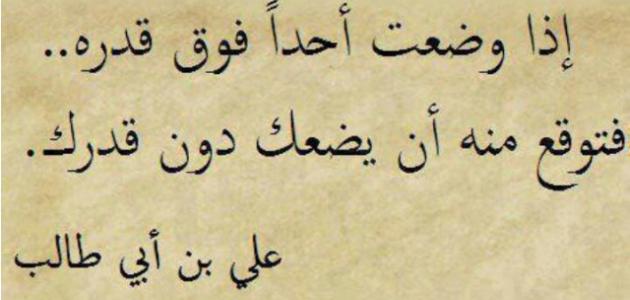 إذا وضعت أحداً فوق قدره..
فتوقع منه أن يضعك دون قدرك.
علي بن أبي طالب